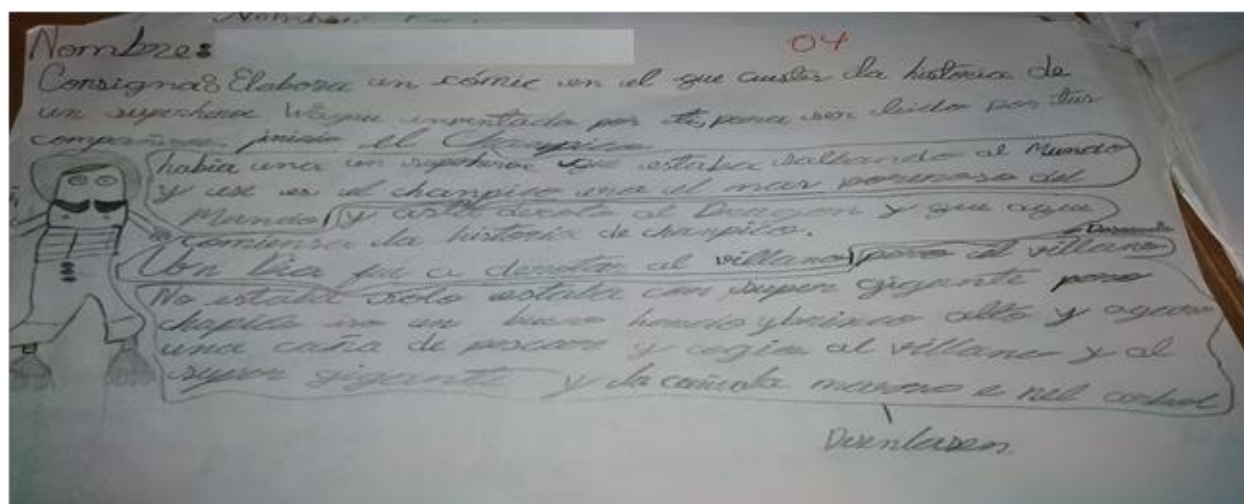 Nombre:
04
Consigna: Elabora un cómic en el que cuestes la historia de
un superheroe Wayuu inventado por ti, para ser leido por tus
compañeros. inicio el Chanpico
había una un superheroe que estaba salbando al Mundo
y ese es el chanpico era el mas poderoso del
Mundo y asta deroto al Dragon y que aqui
comiensa la historia de chanpico.
Un Dia fui a derotar al villano pero el villano
No estaba solo estaba con super gigante pero
chapico un buso hondo y brinco alto y
una caña de pescar y cogio al villano y al
super gigante y la
Desenlasen